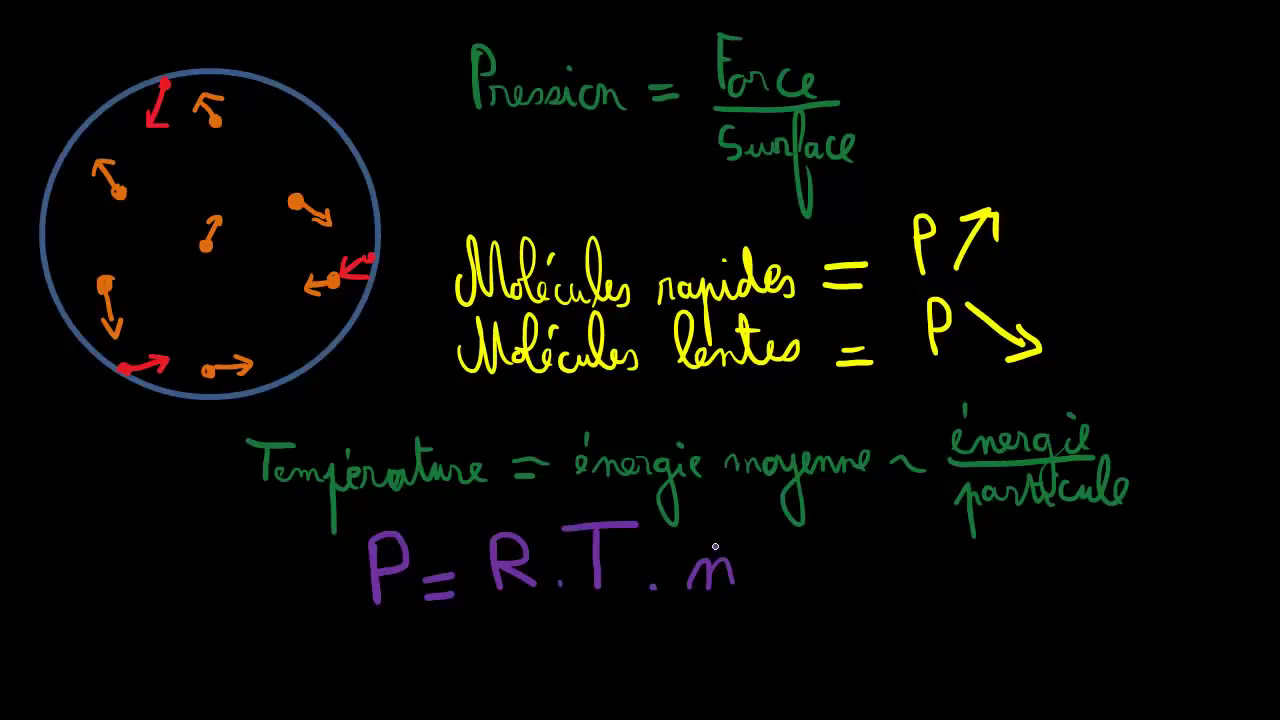 Pression = Force
surface
Molécules rapides = P ↗
Molécules lentes = P ↘
Température = énergie moyenne ~ énergie
particule
P = R . T . n